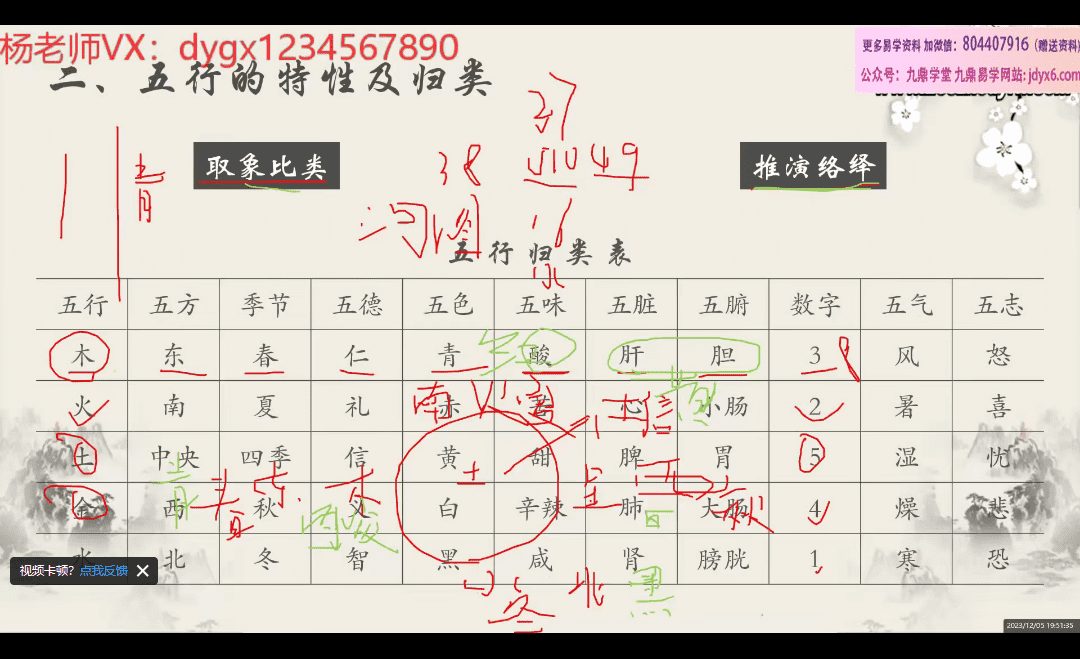 杨老师VX：dygx1234567890
更多易学资料 加微信：804407916（赠送资料）
公众号：九鼎学堂 九鼎易学网站：jdyx6.com
二、五行的特性及归类
27
取象比类
38 510 49
推演络绎
青
河图
16
水
五行归类表
五行 五方 季节 五德 五色 五味 五脏 五腑 数字 五气 五志
木 东 春 仁 青 酸 肝 胆 3 8 风 怒
火 南 夏 礼 赤 苦 心 小肠 2 暑 喜
南 黄
土 中央 四季 信 黄 甜 脾 胃 5 湿 忧
青 春 东 木 土 金 西 秋
金 西 秋 义 白 辛辣 肺 大肠 4 燥 悲
白
水 北 冬 智 黑 咸 肾 膀胱 1 寒 恐
视频卡顿？点我反馈
冬 北 黑
2023/12/05 19:51:35